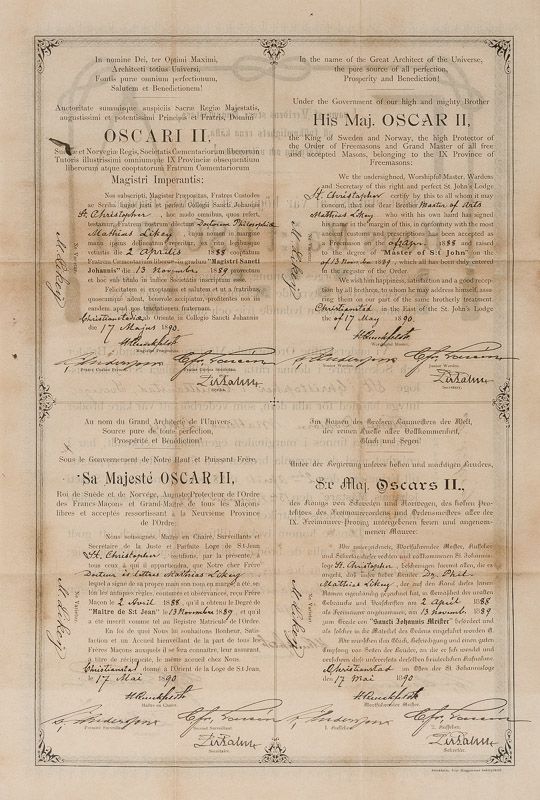 In nomine Dei, ter Optimi Maximi,
Architecti totius Universi,
Fontis puræ omnium perfectionum,
Salutem et Benedictionem!
Auctoritate summisque auspiciis Sacræ Regiæ Majestatis,
augustissimi et potentissimi Principis et Fratris, Domini
OSCARI II,
Sueciæ et Norvegiæ Regis, Societatis Cæmentariorum liberorum
Tutoris illustrissimi omniumque IX Provinciæ obsequentium
liberorum atque cooptatorum Fratrum Cæmentariorum
Magistri Imperantis;
Nos subscripti, Magister Præpositus, Fratres Custodes
ac Scriba hujus justi et perfecti Collegii Sancti Johannis
St. Christopher, hoc audo omnibus, quos refert,
testamur, Fratrem nostrum dilectum Doctorem Philosophiæ
Mathias Likey, qui nomen in margine
vetustis die 2 Aprilis 1888 cooptatum
Fratrem Cæmentarium liberum in gradum "Magistri Sancti
Johannis" die 13 November 1889 provectum
et hoc sub titulo in Indice Societatis inscriptum esse.
Christianstadiæ ab Oriente in Collegio Sancti Johannis
die 17 Majus 1890.
Magister Præpositus.
Scriba.
In the name of the Great Architect of the Universe,
the pure source of all perfection,
Prosperity and Benediction!
Under the Government of our high and mighty Brother
His Maj. OSCAR II,
the King of Sweden and Norway, the high Protector of
the Order of Freemasons and Grand Master of all free
and accepted Masons, belonging to the IX Province of
Freemasons:
We the undersigned, Worshipful Master, Wardens
and Secretary of this right and perfect St. John's Lodge
St. Christopher certify by this to all whom it may
concern, that our dear Brother Master of Arts
Mathias Likey who with his own hand has signed
his name in the margin of this, in conformity with the most
ancient customs and prescriptions has been accepted as
a Freemason on the 2 of Apr. 1888 and raised
to the degree of "Master of S:t John" on the
of 13 November 1889, which all has been duly entered
in the register of the Order.
We wish him happiness, satisfaction and a good reception
by all brethren, to whom he may address himself, assuring
them on our part of the same brotherly treatment.
Christianstad, in the East of the S:t John's Lodge
the of 17 May 1890.
Worshipful Master.
Senior Warden.
Junior Warden.
Secretary.
Au nom du Grand Architecte de l'Univers,
Source pure de toute perfection,
Prospérité et Bénédiction!
Sous le Gouvernement de Notre Haut et Puissant Frère,
Sa Majesté OSCAR II,
Roi de Suède et de Norvège, Auguste Protecteur de l'Ordre
des Francs-Maçons et Grand-Maître de tous les Maçons
libres et acceptés ressortissant à la Neuvième Province
de l'Ordre:
Nous soussignés, Maître en Chaire, Surveillants et
Secrétaire de la Juste et Parfaite Loge de St-Jean
St. Christopher certifions, par la présente, à
tous ceux à qui il appartiendra, que Notre cher Frère
Docteur ès lettres Mathias Likey
lequel a signé de sa propre main son nom en marge, a été, selon
les antiques règles, coutumes et observances, reçu Frère
Maçon le 2 Avril 1888, qu'il a obtenu le Degré de
"Maître de St Jean" le 13 Novembre 1889 et qu'il
a été inscrit comme tel au Registre Matricule de l'Ordre.
En foi de quoi Nous lui souhaitons Bonheur, Satisfaction
et un Accueil bienveillant de la part de tous les
Frères Maçons auxquels il se fera connaître, leur assurant,
à titre de réciprocité, le même accueil chez Nous.
Christianstad donné à l'Orient de la Loge de St-Jean,
le 17 Mai 1890.
Maître en Chaire.
Premier Surveillant.
Second Surveillant.
Secrétaire.
Im Namen des Großen Baumeisters der Welt,
der reinen Quelle aller Vollkommenheit,
Glück und Segen!
Unter der Regierung unseres hohen und mächtigen Bruders,
Sr Maj. Oscars II.,
des Königs von Schweden und Norwegen, des hohen Protektors
des Freimaurerordens und Ordensmeisters aller der
IX. Freimaurer-Provinz untergebenen freien und angenommenen
Maurer:
Wir unterzeichnete, Wortführender Meister, Aufseher
und Sekretär der rechten und vollkommenen St. Johannis-
loge St. Christopher, bescheinigen hiermit allen, die es
angeht, daß unser lieber Bruder Dr. Phil.
Mathias Likey, der auf dem Rand dieses seinen
Namen eigenhändig gezeichnet hat, in Gemäßheit der uralten
Gebräuche und Vorschriften am 2 April 1888
als Freimaurer angenommen, am 13 November 1889
zum Grade von "Sancti Johannis Meister" befördert und
als solcher in die Matrikel des Ordens eingeführt worden ist.
Christianstad im Osten der St. Johannisloge
den 17 Mai 1890
Wortführender Meister.
1. Aufseher.
2. Aufseher.
Sekretär.